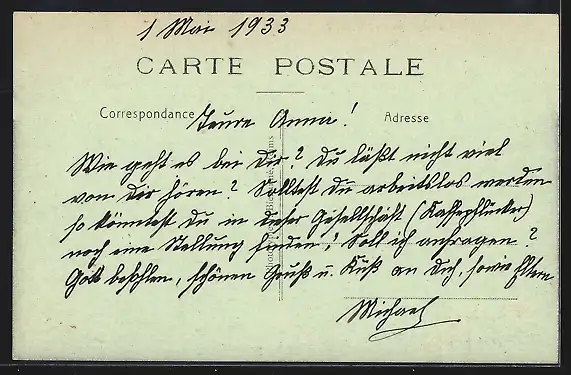 1 Mai 1933
CARTE POSTALE
Correspondance
Adresse
Teure Anna!
Wie geht es bei Dir? Du läßt nicht viel
von Dir hören? Solltest Du arbeitslos werden
so könntest Du in dieser Gesellschaft (Kaffepflücker)
noch eine Stellung finden! Soll ich anfragen?
Gott befohlen, schönen Gruß u. Kuß an Dich, sowie Eltern
Michael